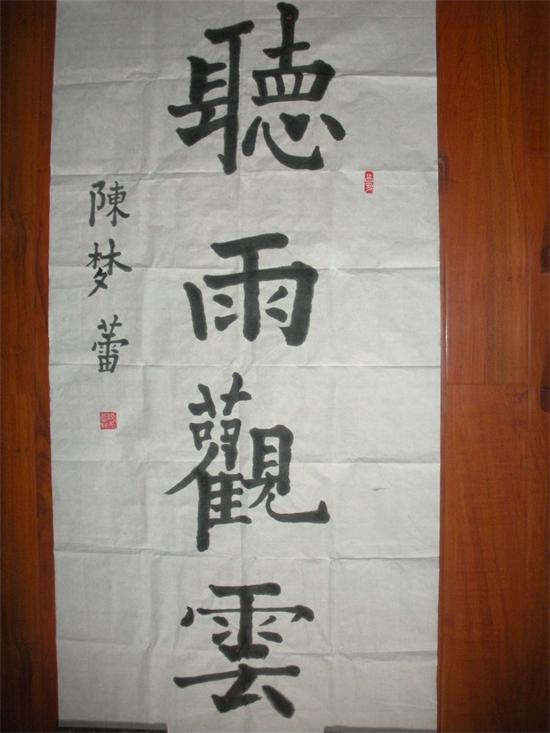 聽雨觀雲
陳梦蕾